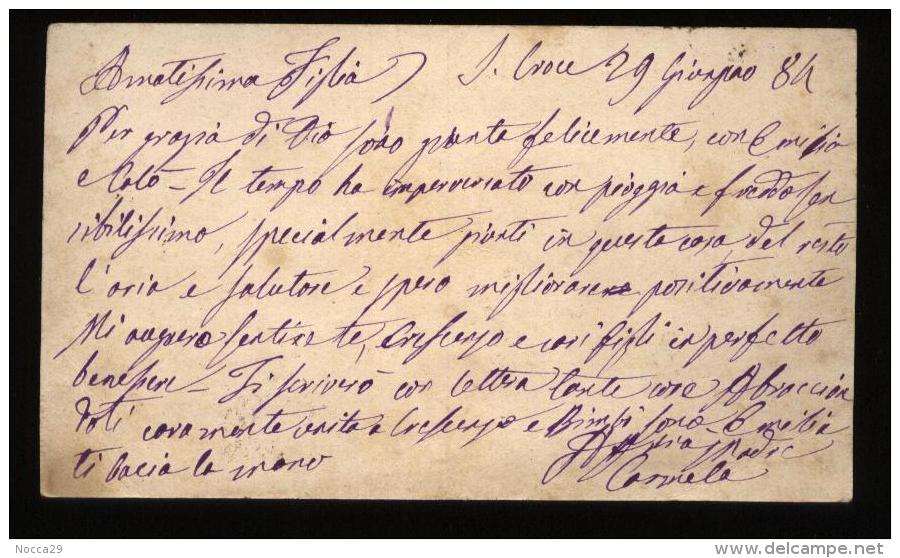 Amatissima Figlia S. Croce 29 Giugno 84
Per grazia di Dio sono giunta felicemente, con Emilia
e Totò - Il tempo ha imperversato con pioggia e freddo sen
sibilissimo, specialmente giunti in questa casa, del resto
l'aria è salutare e spero migliorare positivamente
Mi auguro sentire te, Crescenzo e cari figli in perfetto
benessere - Ti scriverò con lettera tante cose Abbraccian
doti caramente unita a Crescenzo e Bimbi sono Emilia
ti bacia la mano Madre
Carmela
Nocca29
delcampe.net